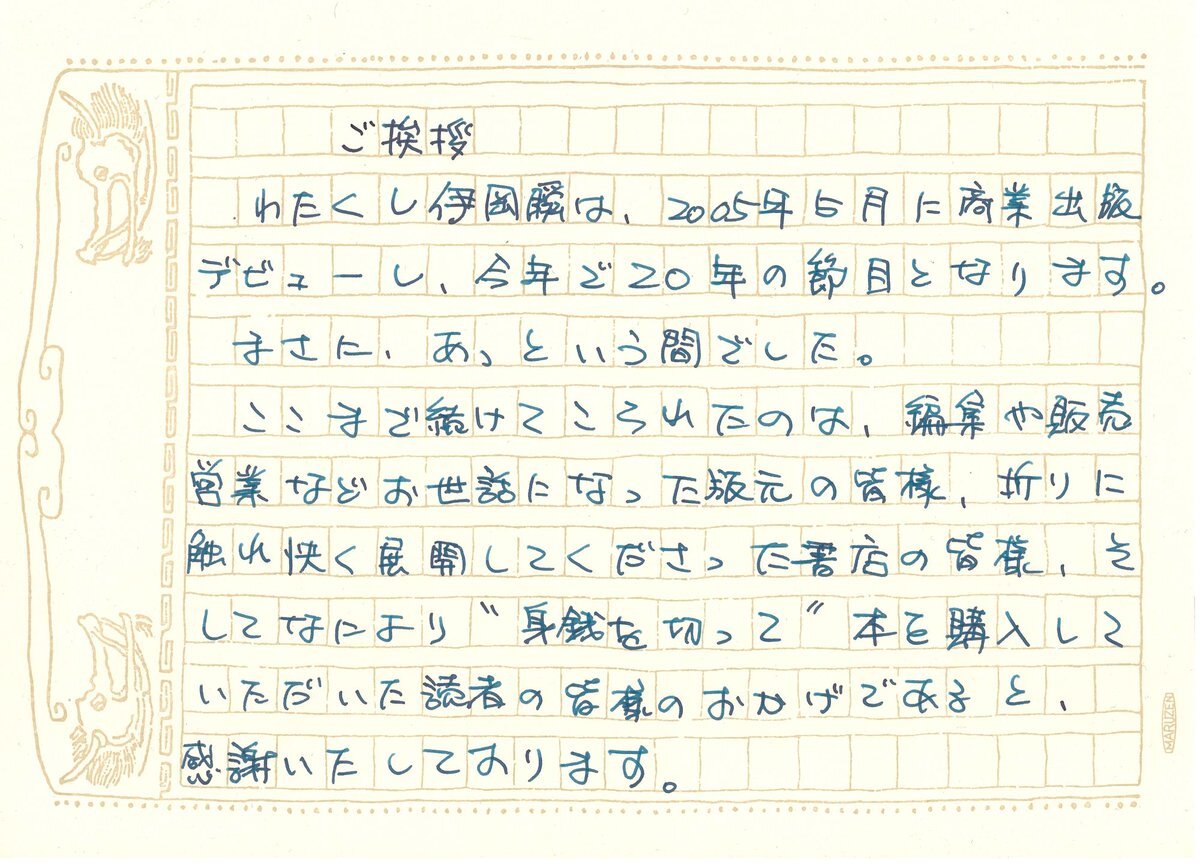 ご挨拶
わたくし伊岡瞬は、2005年5月に商業出版
デビューし、今年で20年の節目となります。
まさに、あっという間でした。
ここまで続けてこられたのは、編集や販売
営業などお世話になった版元の皆様、折りに
触れ快く展開してくださった書店の皆様、そ
してなにより〝身銭を切って〟本を購入して
いただいた読者の皆様のおかげであると、
感謝いたしております。
MARUZEN